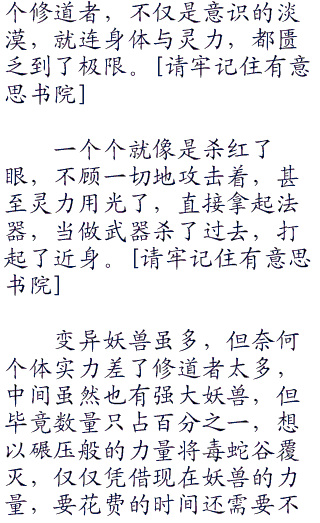 个修道者，不仅是意识的淡
漠，就连身体与灵力，都匮
乏到了极限。[请牢记住有意
思书院]
一个个就像是杀红了
眼，不顾一切地攻击着，甚
至灵力用光了，直接拿起法
器，当做武器杀了过去，打
起了近身。[请牢记住有意思
书院]
变异妖兽虽多，但奈何
个体实力差了修道者太多，
中间虽然也有强大妖兽，但
毕竟数量只占百分之一，想
以碾压般的力量将毒蛇谷覆
灭，仅仅凭借现在妖兽的力
量，要花费的时间还需要不